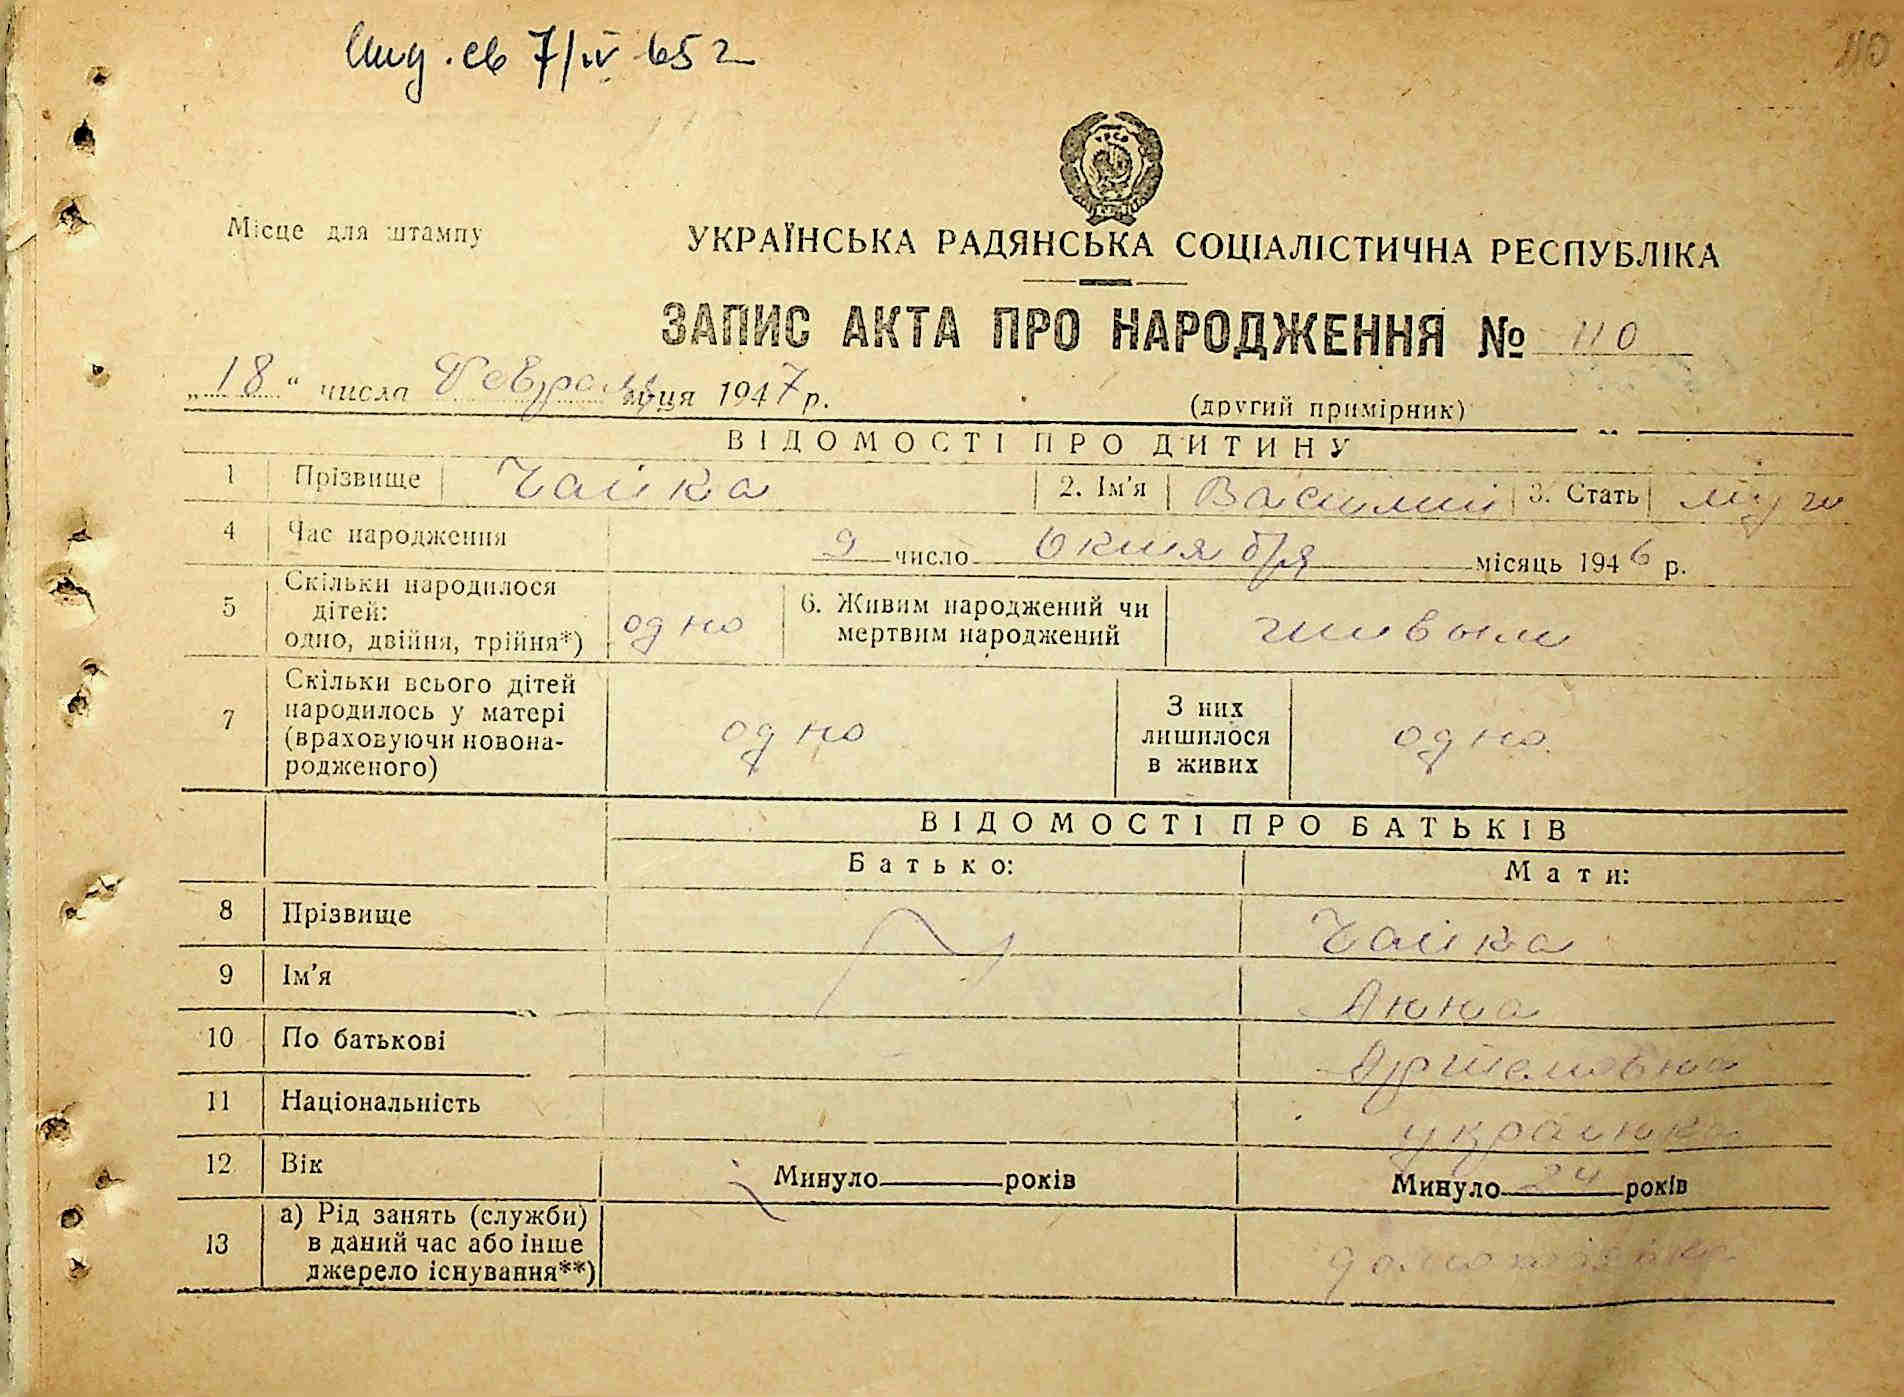 Выд. св 7/IV 65 г
110
УРСР
Місце для штампу
УКРАЇНСЬКА РАДЯНСЬКА СОЦІАЛІСТИЧНА РЕСПУБЛІКА
ЗАПИС АКТА ПРО НАРОДЖЕННЯ № 110
„18“ числа Февраля місяця 1947 р.
(другий примірник)
ВІДОМОСТІ ПРО ДИТИНУ
1 Прізвище Чайка 2. Ім'я Василий 3. Стать муж
4 Час народження 9 число Октября місяць 1946 р.
5 Скільки народилося дітей: одно, двійня, трійня*) одно 6. Живим народжений чи мертвим народжений живым
7 Скільки всього дітей народилось у матері (враховуючи новонародженого) одно З них лишилося в живих одно
ВІДОМОСТІ ПРО БАТЬКІВ
Батько: Мати:
8 Прізвище Чайка
9 Ім'я Анна
10 По батькові Артемовна
11 Національність украинка
12 Вік Минуло років Минуло 24 років
13 а) Рід занять (служби) в даний час або інше джерело існування**) домохозяйка